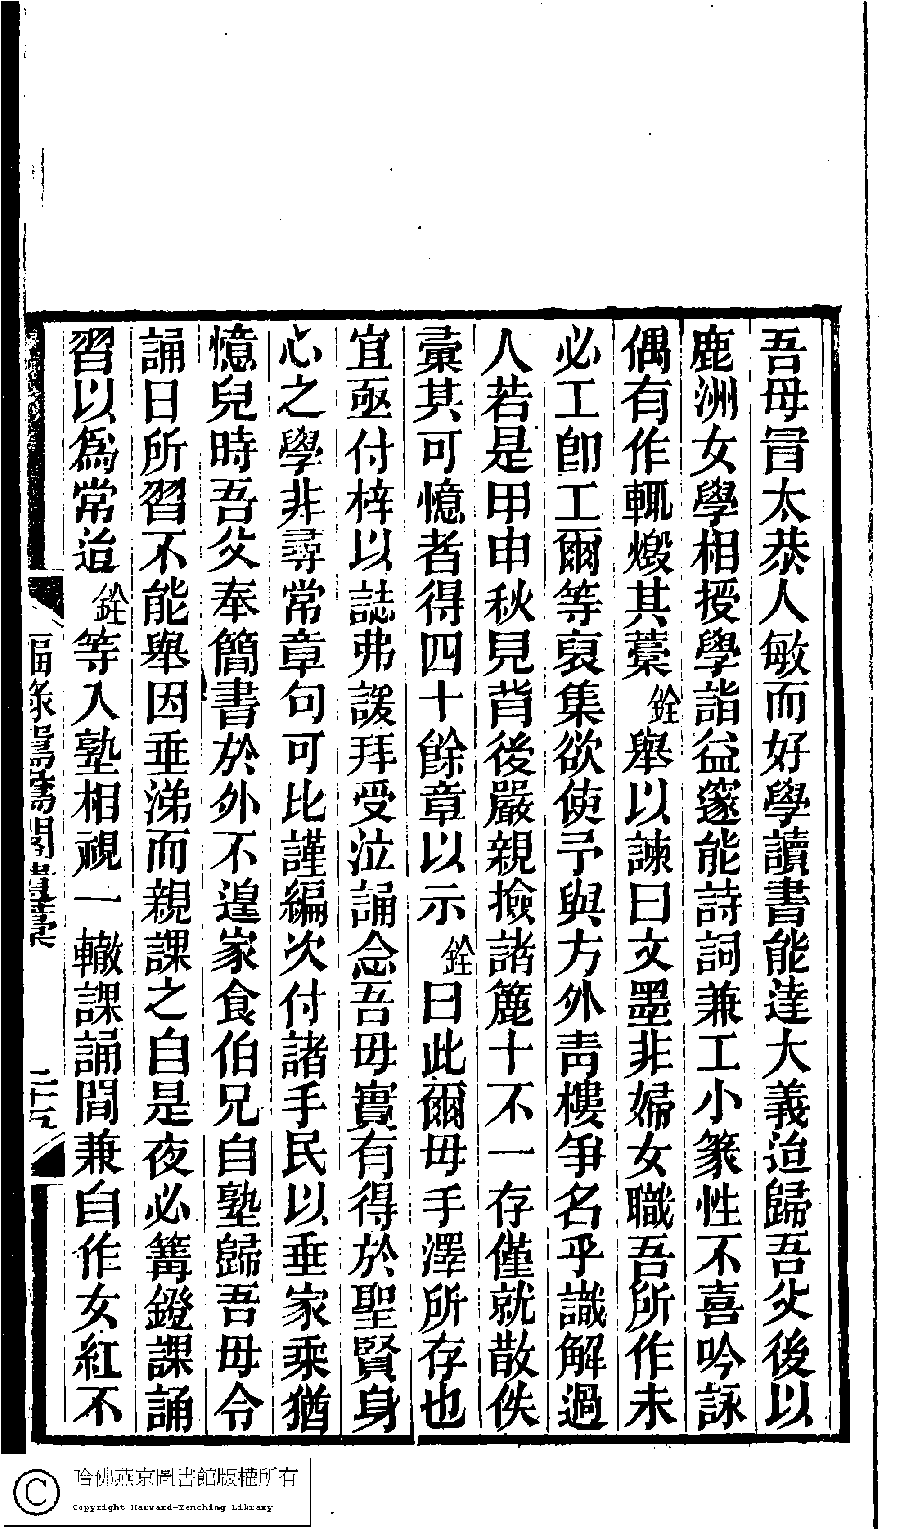 吾母冒太恭人敏而好學讀書能達大義迨歸吾父後以
鹿洲女學相授學詣益邃能詩詞兼工小篆性不喜吟詠
偶有作輒燬其藁銓舉以諫曰文墨非婦女職吾所作未
必工卽工爾等裒集欲使予與方外靑樓爭名乎識解過
人若是甲申秋見背後嚴親撿諸簏十不一存僅就散佚
彙其可憶者得四十餘章以示銓曰此爾母手澤所存也
宜亟付梓以誌弗諼拜受泣誦念吾母實有得於聖賢身
心之學非尋常章句可比謹編次付諸手民以垂家乘猶
憶兒時吾父奉簡書於外不遑家食伯兄自塾歸吾母令
誦日所習不能舉因垂涕而親課之自是夜必篝鐙課誦
習以爲常迨銓等入塾相視一轍課誦間兼自作女紅不
二十五
哈佛燕京圖書館版權所有
Copyright Harvard-Yenching Library